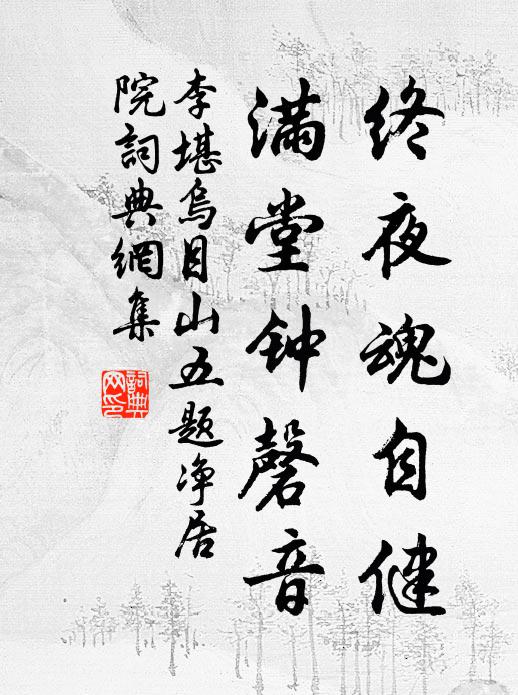 终夜魂自健
满堂钟磬音
李堪乌目山五题净居
院詞典網集
詞典
网印